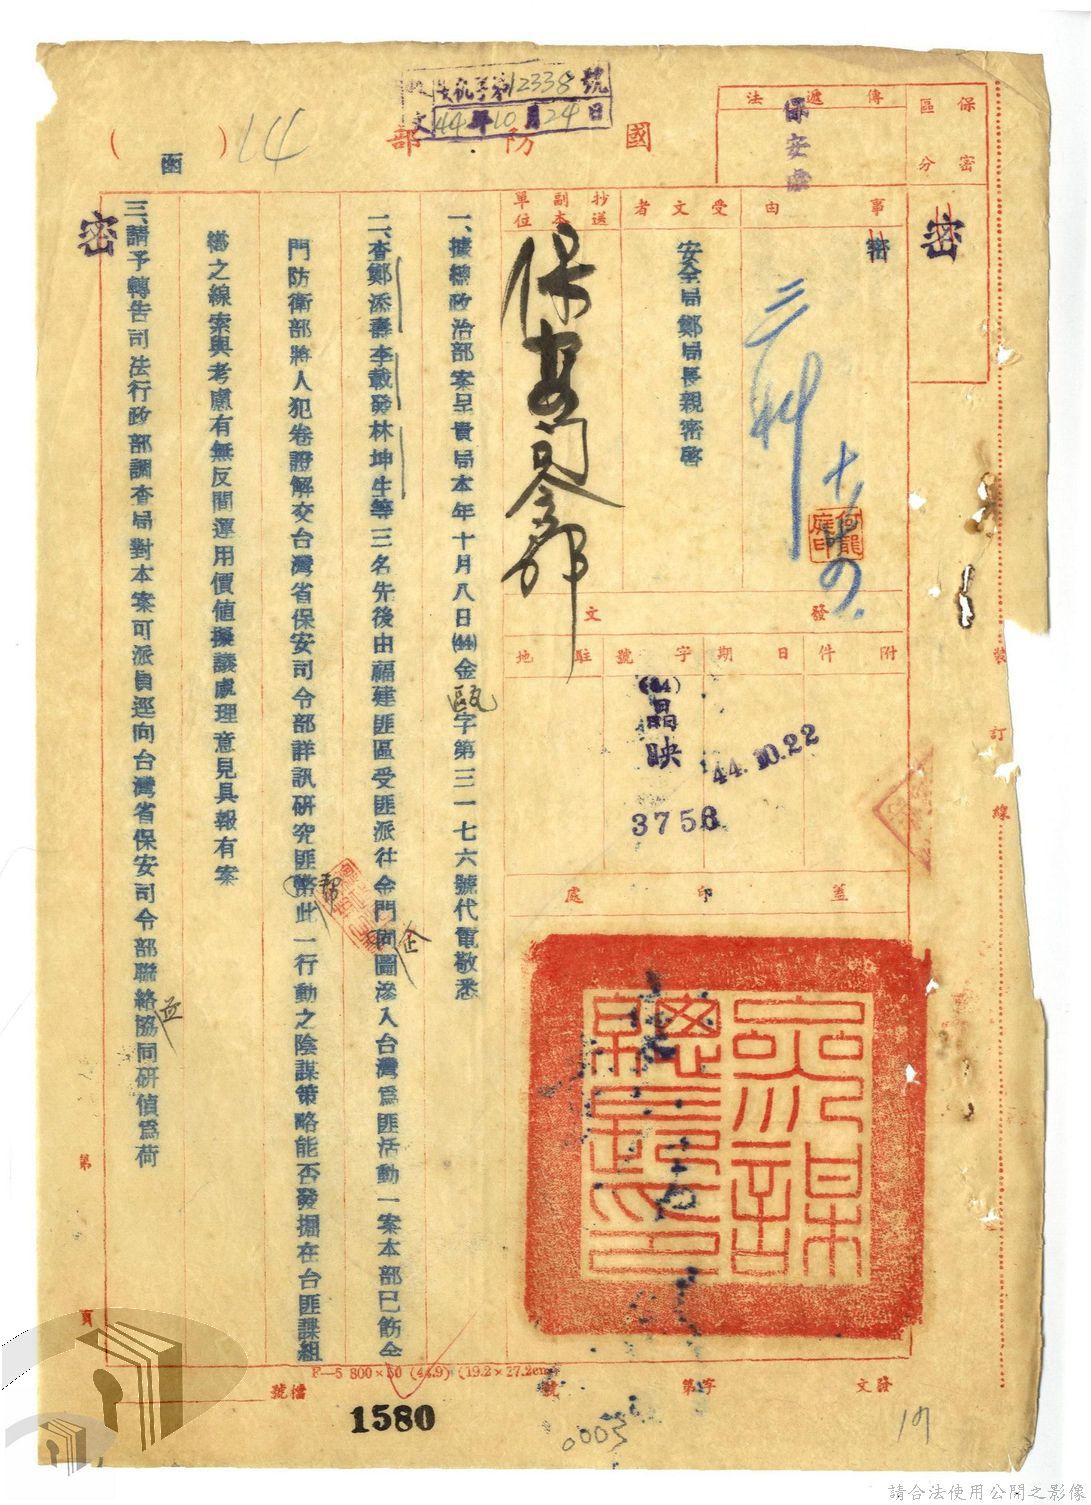 收 安機字第12338號
文 44年10月24日
國防部
(函)
14
保密區分
密
傳遞法
保安處
事由
密
受文者
安全局鄭局長親密啓
抄送副本單位
保安司令部
發文
附件
日期
字號
駐地
44.10.22
(44)晶映
3758
蓋印處
參謀總長之印
何龍庭印
一、據總政治部案呈貴局本年十月八日(44)金甌字第三一七六號代電敬悉
二、查鄭添壽李戴發林坤生等三名先後由福建匪區受匪派往金門企圖滲入台灣爲匪活動一案本部已飭金
門防衛部將人犯卷證解交台灣省保安司令部詳訊研究匪幫此一行動之陰謀策略能否發掘在台匪諜組
織之線索與考慮有無反間運用價值擬議處理意見具報有案
三、請予轉告司法行政部調查局對本案可派員逕向台灣省保安司令部聯絡並協同研偵爲荷
密
裝訂線
第 頁
F—5 800×50 (44.9) (19.2×27.2cm)
發文 字第 號
檔號
1580
0003
請合法使用公開之影像